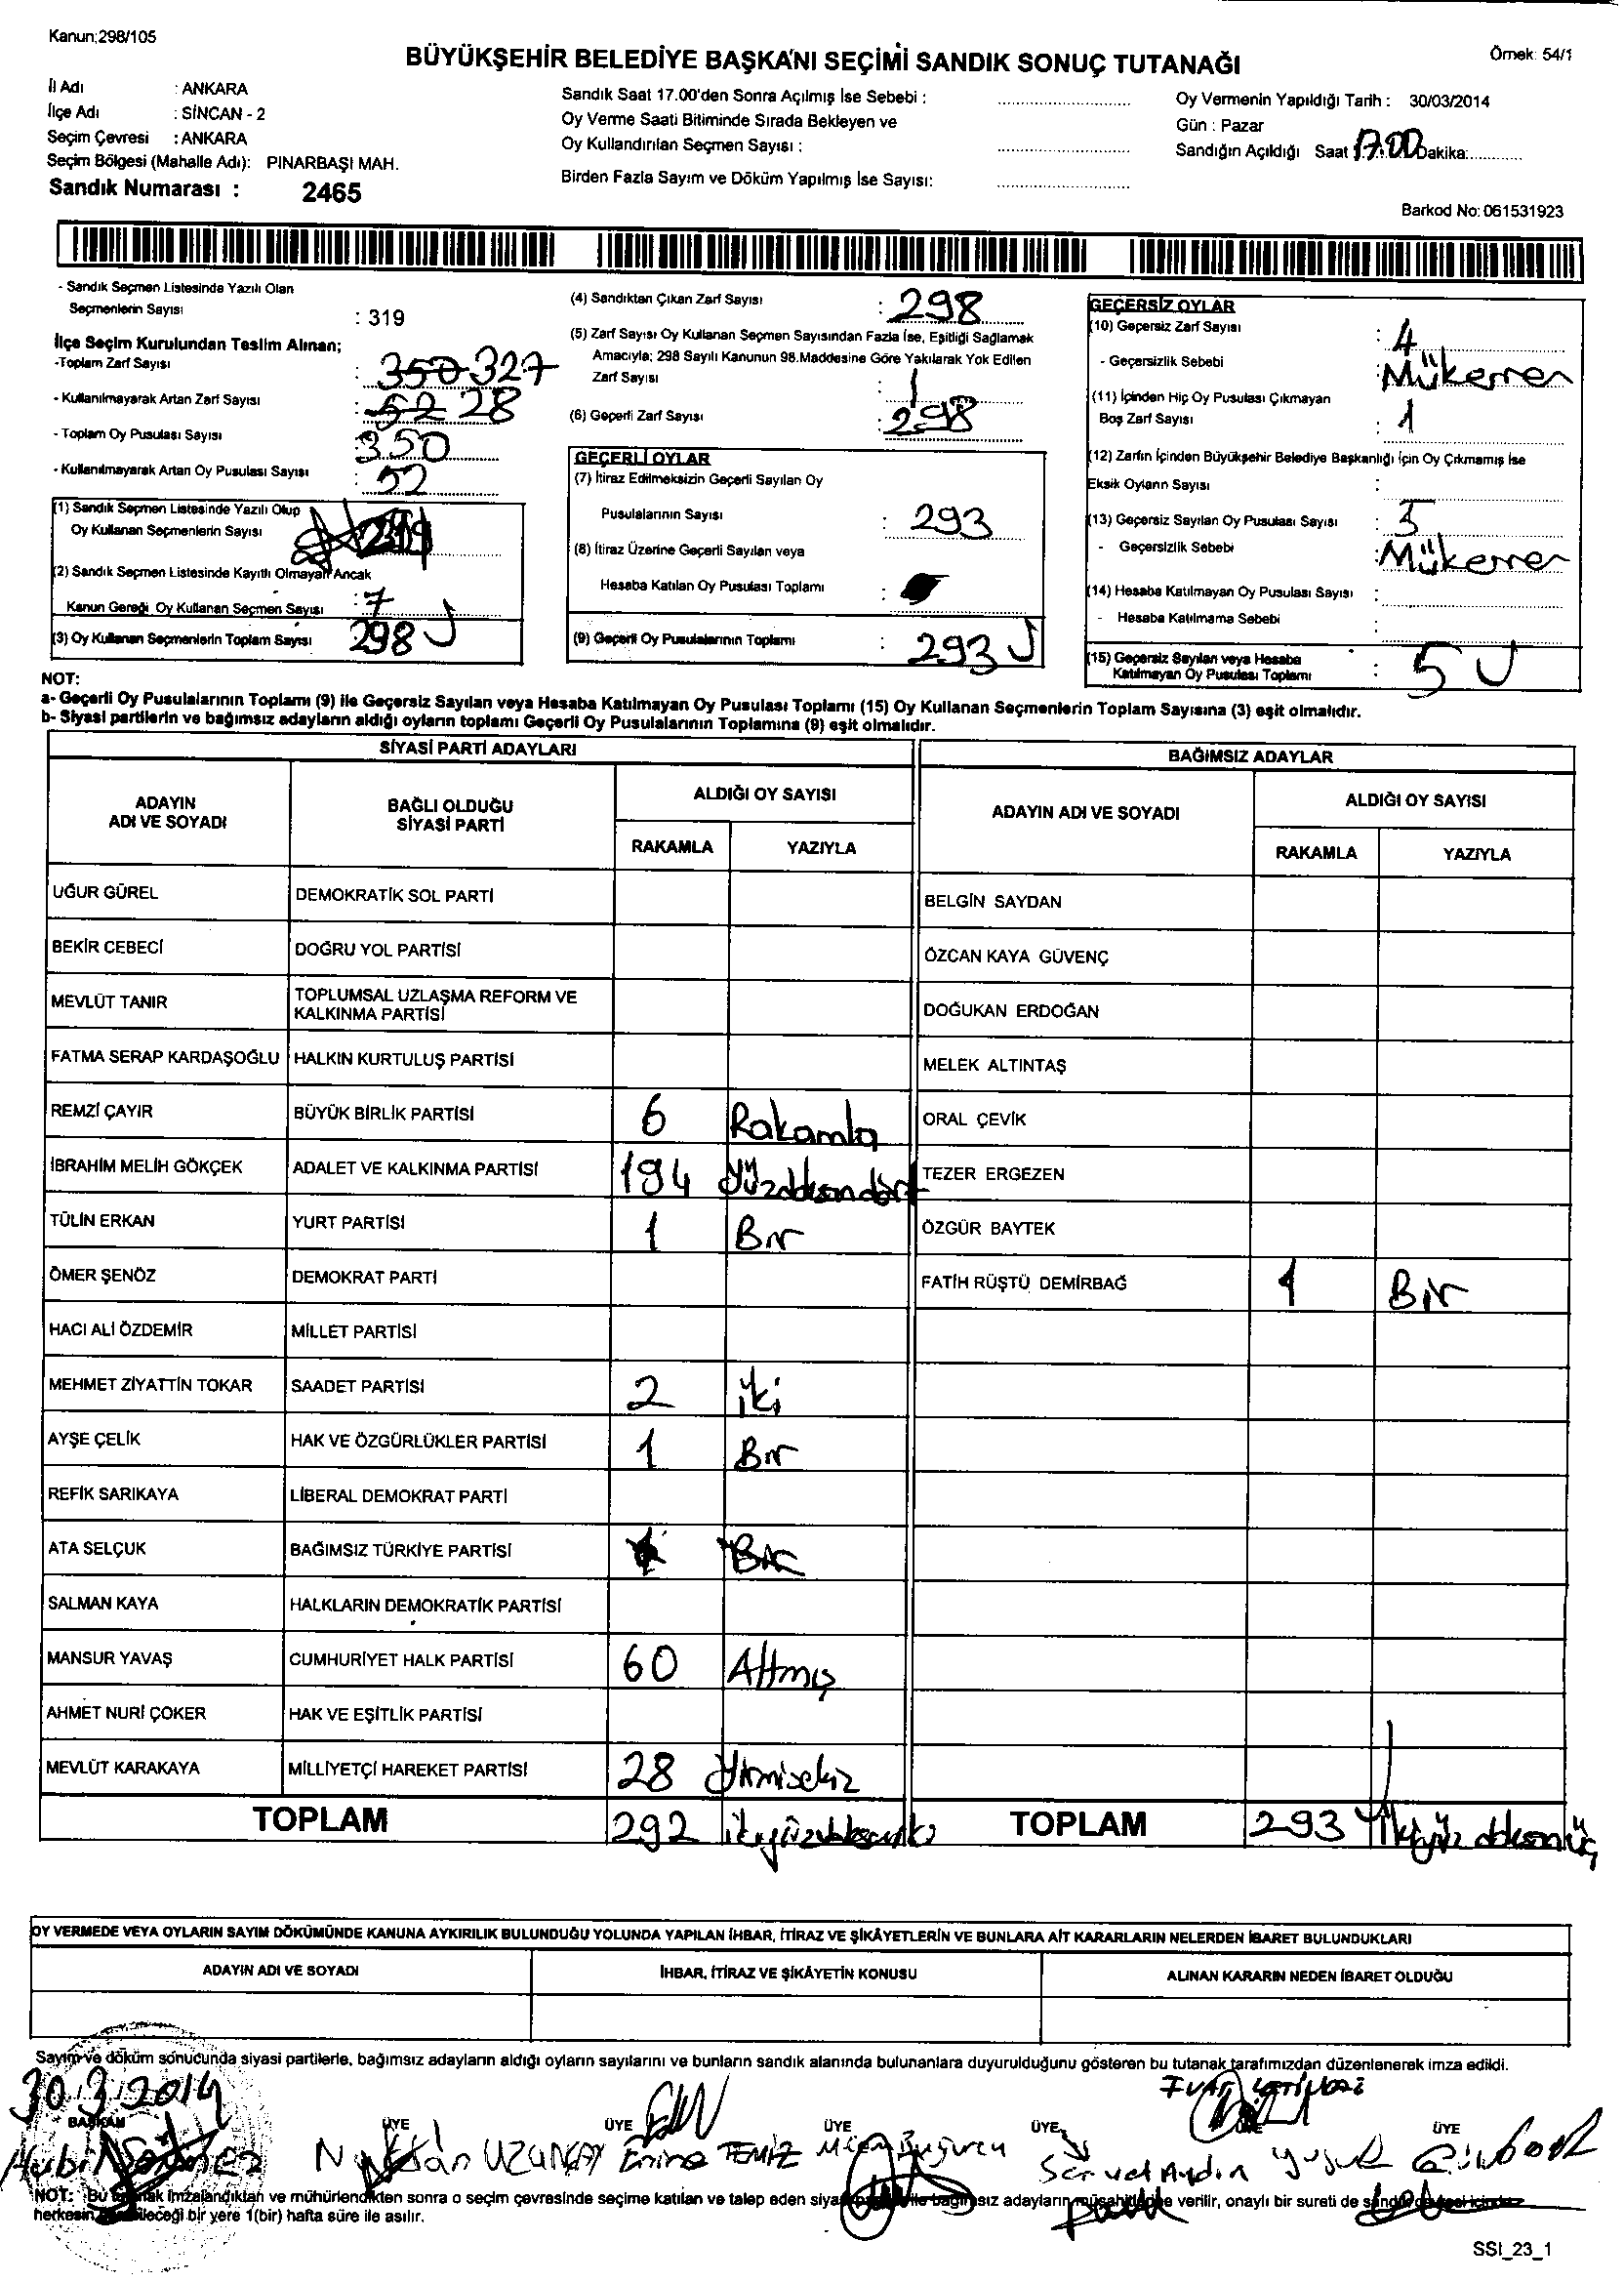 Kanun;298/105
BÜYÜKŞEHİR BELEDİYE BAŞKANI SEÇİMİ SANDIK SONUÇ TUTANAĞI
Örnek: 54/1
İl Adı : ANKARA
İlçe Adı : SİNCAN - 2
Seçim Çevresi : ANKARA
Seçim Bölgesi (Mahalle Adı): PINARBAŞI MAH.
Sandık Numarası : 2465
Sandık Saat 17.00'den Sonra Açılmış İse Sebebi :
Oy Verme Saati Bitiminde Sırada Bekleyen ve
Oy Kullandırılan Seçmen Sayısı :
Birden Fazla Sayım ve Döküm Yapılmış İse Sayısı:
Oy Vermenin Yapıldığı Tarih : 30/03/2014
Gün : Pazar
Sandığın Açıldığı Saat 17.00 Dakika:
Barkod No: 061531923
- Sandık Seçmen Listesinde Yazılı Olan
Seçmenlerin Sayısı : 319
İlçe Seçim Kurulundan Teslim Alınan;
-Toplam Zarf Sayısı : 350 327
- Kullanılmayarak Artan Zarf Sayısı : 52 28
- Toplam Oy Pusulası Sayısı : 350
- Kullanılmayarak Artan Oy Pusulası Sayısı : 52
(1) Sandık Seçmen Listesinde Yazılı Olup
Oy Kullanan Seçmenlerin Sayısı
(2) Sandık Seçmen Listesinde Kayıtlı Olmayan Ancak
Kanun Gereği Oy Kullanan Seçmen Sayısı : 7
(3) Oy Kullanan Seçmenlerin Toplam Sayısı 298
(4) Sandıktan Çıkan Zarf Sayısı : 298
(5) Zarf Sayısı Oy Kullanan Seçmen Sayısından Fazla İse, Eşitliği Sağlamak
Amacıyla; 298 Sayılı Kanunun 98.Maddesine Göre Yakılarak Yok Edilen
Zarf Sayısı :
(6) Geçerli Zarf Sayısı : 298
GEÇERLİ OYLAR
(7) İtiraz Edilmeksizin Geçerli Sayılan Oy
Pusulalarının Sayısı : 293
(8) İtiraz Üzerine Geçerli Sayılan veya
Hesaba Katılan Oy Pusulası Toplamı :
(9) Geçerli Oy Pusulalarının Toplamı : 293
GEÇERSİZ OYLAR
(10) Geçersiz Zarf Sayısı : 4
- Geçersizlik Sebebi : Mükerrer
(11) İçinden Hiç Oy Pusulası Çıkmayan
Boş Zarf Sayısı : 1
(12) Zarfın İçinden Büyükşehir Belediye Başkanlığı İçin Oy Çıkmamış İse
Eksik Oyların Sayısı :
(13) Geçersiz Sayılan Oy Pusulası Sayısı : 5
- Geçersizlik Sebebi : Mükerrer
(14) Hesaba Katılmayan Oy Pusulası Sayısı :
- Hesaba Katılmama Sebebi :
(15) Geçersiz Sayılan veya Hesaba
Katılmayan Oy Pusulası Toplamı : 5
NOT:
a- Geçerli Oy Pusulalarının Toplamı (9) ile Geçersiz Sayılan veya Hesaba Katılmayan Oy Pusulası Toplamı (15) Oy Kullanan Seçmenlerin Toplam Sayısına (3) eşit olmalıdır.
b- Siyasi partilerin ve bağımsız adayların aldığı oyların toplamı Geçerli Oy Pusulalarının Toplamına (9) eşit olmalıdır.
SİYASİ PARTİ ADAYLARI
BAĞIMSIZ ADAYLAR
ADAYIN ADI VE SOYADI
BAĞLI OLDUĞU SİYASİ PARTİ
ALDIĞI OY SAYISI
RAKAMLA YAZIYLA
ADAYIN ADI VE SOYADI
ALDIĞI OY SAYISI
RAKAMLA YAZIYLA
UĞUR GÜREL DEMOKRATİK SOL PARTİ BELGİN SAYDAN
BEKİR CEBECİ DOĞRU YOL PARTİSİ ÖZCAN KAYA GÜVENÇ
MEVLÜT TANIR TOPLUMSAL UZLAŞMA REFORM VE KALKINMA PARTİSİ DOĞUKAN ERDOĞAN
FATMA SERAP KARDAŞOĞLU HALKIN KURTULUŞ PARTİSİ MELEK ALTINTAŞ
REMZİ ÇAYIR BÜYÜK BİRLİK PARTİSİ 6 Rakamla ORAL ÇEVİK
İBRAHİM MELİH GÖKÇEK ADALET VE KALKINMA PARTİSİ 194 TEZER ERGEZEN
TÜLİN ERKAN YURT PARTİSİ 1 Bir ÖZGÜR BAYTEK
ÖMER ŞENÖZ DEMOKRAT PARTİ FATİH RÜŞTÜ DEMİRBAĞ 1 Bir
HACI ALİ ÖZDEMİR MİLLET PARTİSİ
MEHMET ZİYATTİN TOKAR SAADET PARTİSİ 2 iki
AYŞE ÇELİK HAK VE ÖZGÜRLÜKLER PARTİSİ 1 Bir
REFİK SARIKAYA LİBERAL DEMOKRAT PARTİ
ATA SELÇUK BAĞIMSIZ TÜRKİYE PARTİSİ
SALMAN KAYA HALKLARIN DEMOKRATİK PARTİSİ
MANSUR YAVAŞ CUMHURİYET HALK PARTİSİ 60 Altmış
AHMET NURİ ÇOKER HAK VE EŞİTLİK PARTİSİ
MEVLÜT KARAKAYA MİLLİYETÇİ HAREKET PARTİSİ 28 Yirmisekiz
TOPLAM 292 TOPLAM 293
OY VERMEDE VEYA OYLARIN SAYIM DÖKÜMÜNDE KANUNA AYKIRILIK BULUNDUĞU YOLUNDA YAPILAN İHBAR, İTİRAZ VE ŞİKÂYETLERİN VE BUNLARA AİT KARARLARIN NELERDEN İBARET BULUNDUKLARI
ADAYIN ADI VE SOYADI İHBAR, İTİRAZ VE ŞİKÂYETİN KONUSU ALINAN KARARIN NEDEN İBARET OLDUĞU
Sayım ve döküm sonucunda siyasi partilerle, bağımsız adayların aldığı oyların sayılarını ve bunların sandık alanında bulunanlara duyurulduğunu gösteren bu tutanak tarafımızdan düzenlenerek imza edildi.
30.3.2014
BAŞKAN ÜYE ÜYE ÜYE ÜYE ÜYE
Emine TEMİZ Servet Aydın Yusuf
NOT: Bu tutanak imzalandıktan ve mühürlendikten sonra o seçim çevresinde seçime katılan ve talep eden siyasi ile bağımsız adayların müşahitlerine verilir, onaylı bir sureti de
herkesin bir yere 1(bir) hafta süre ile asılır.
SSI_23_1